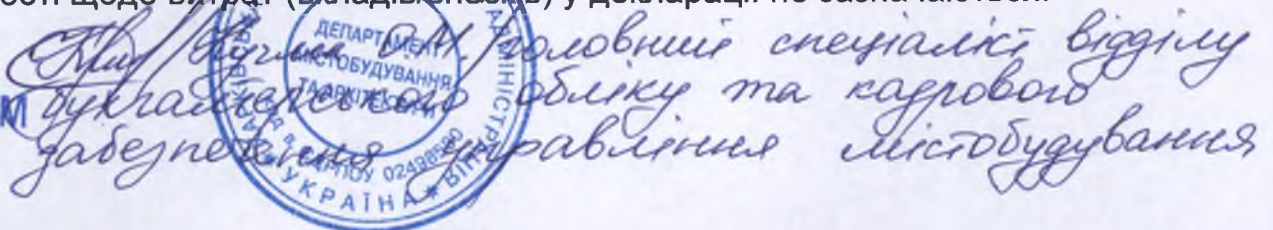 щодо витрат (вкладів/внесків) у декларації не зазначаються.
О.М. головний спеціаліст відділу
бухгалтерського обліку та кадрового
забезпечення управління містобудування
ДЕПАРТАМЕНТ
МІСТОБУДУВАННЯ
ТА АРХІТЕКТУРИ
УКРАЇНА